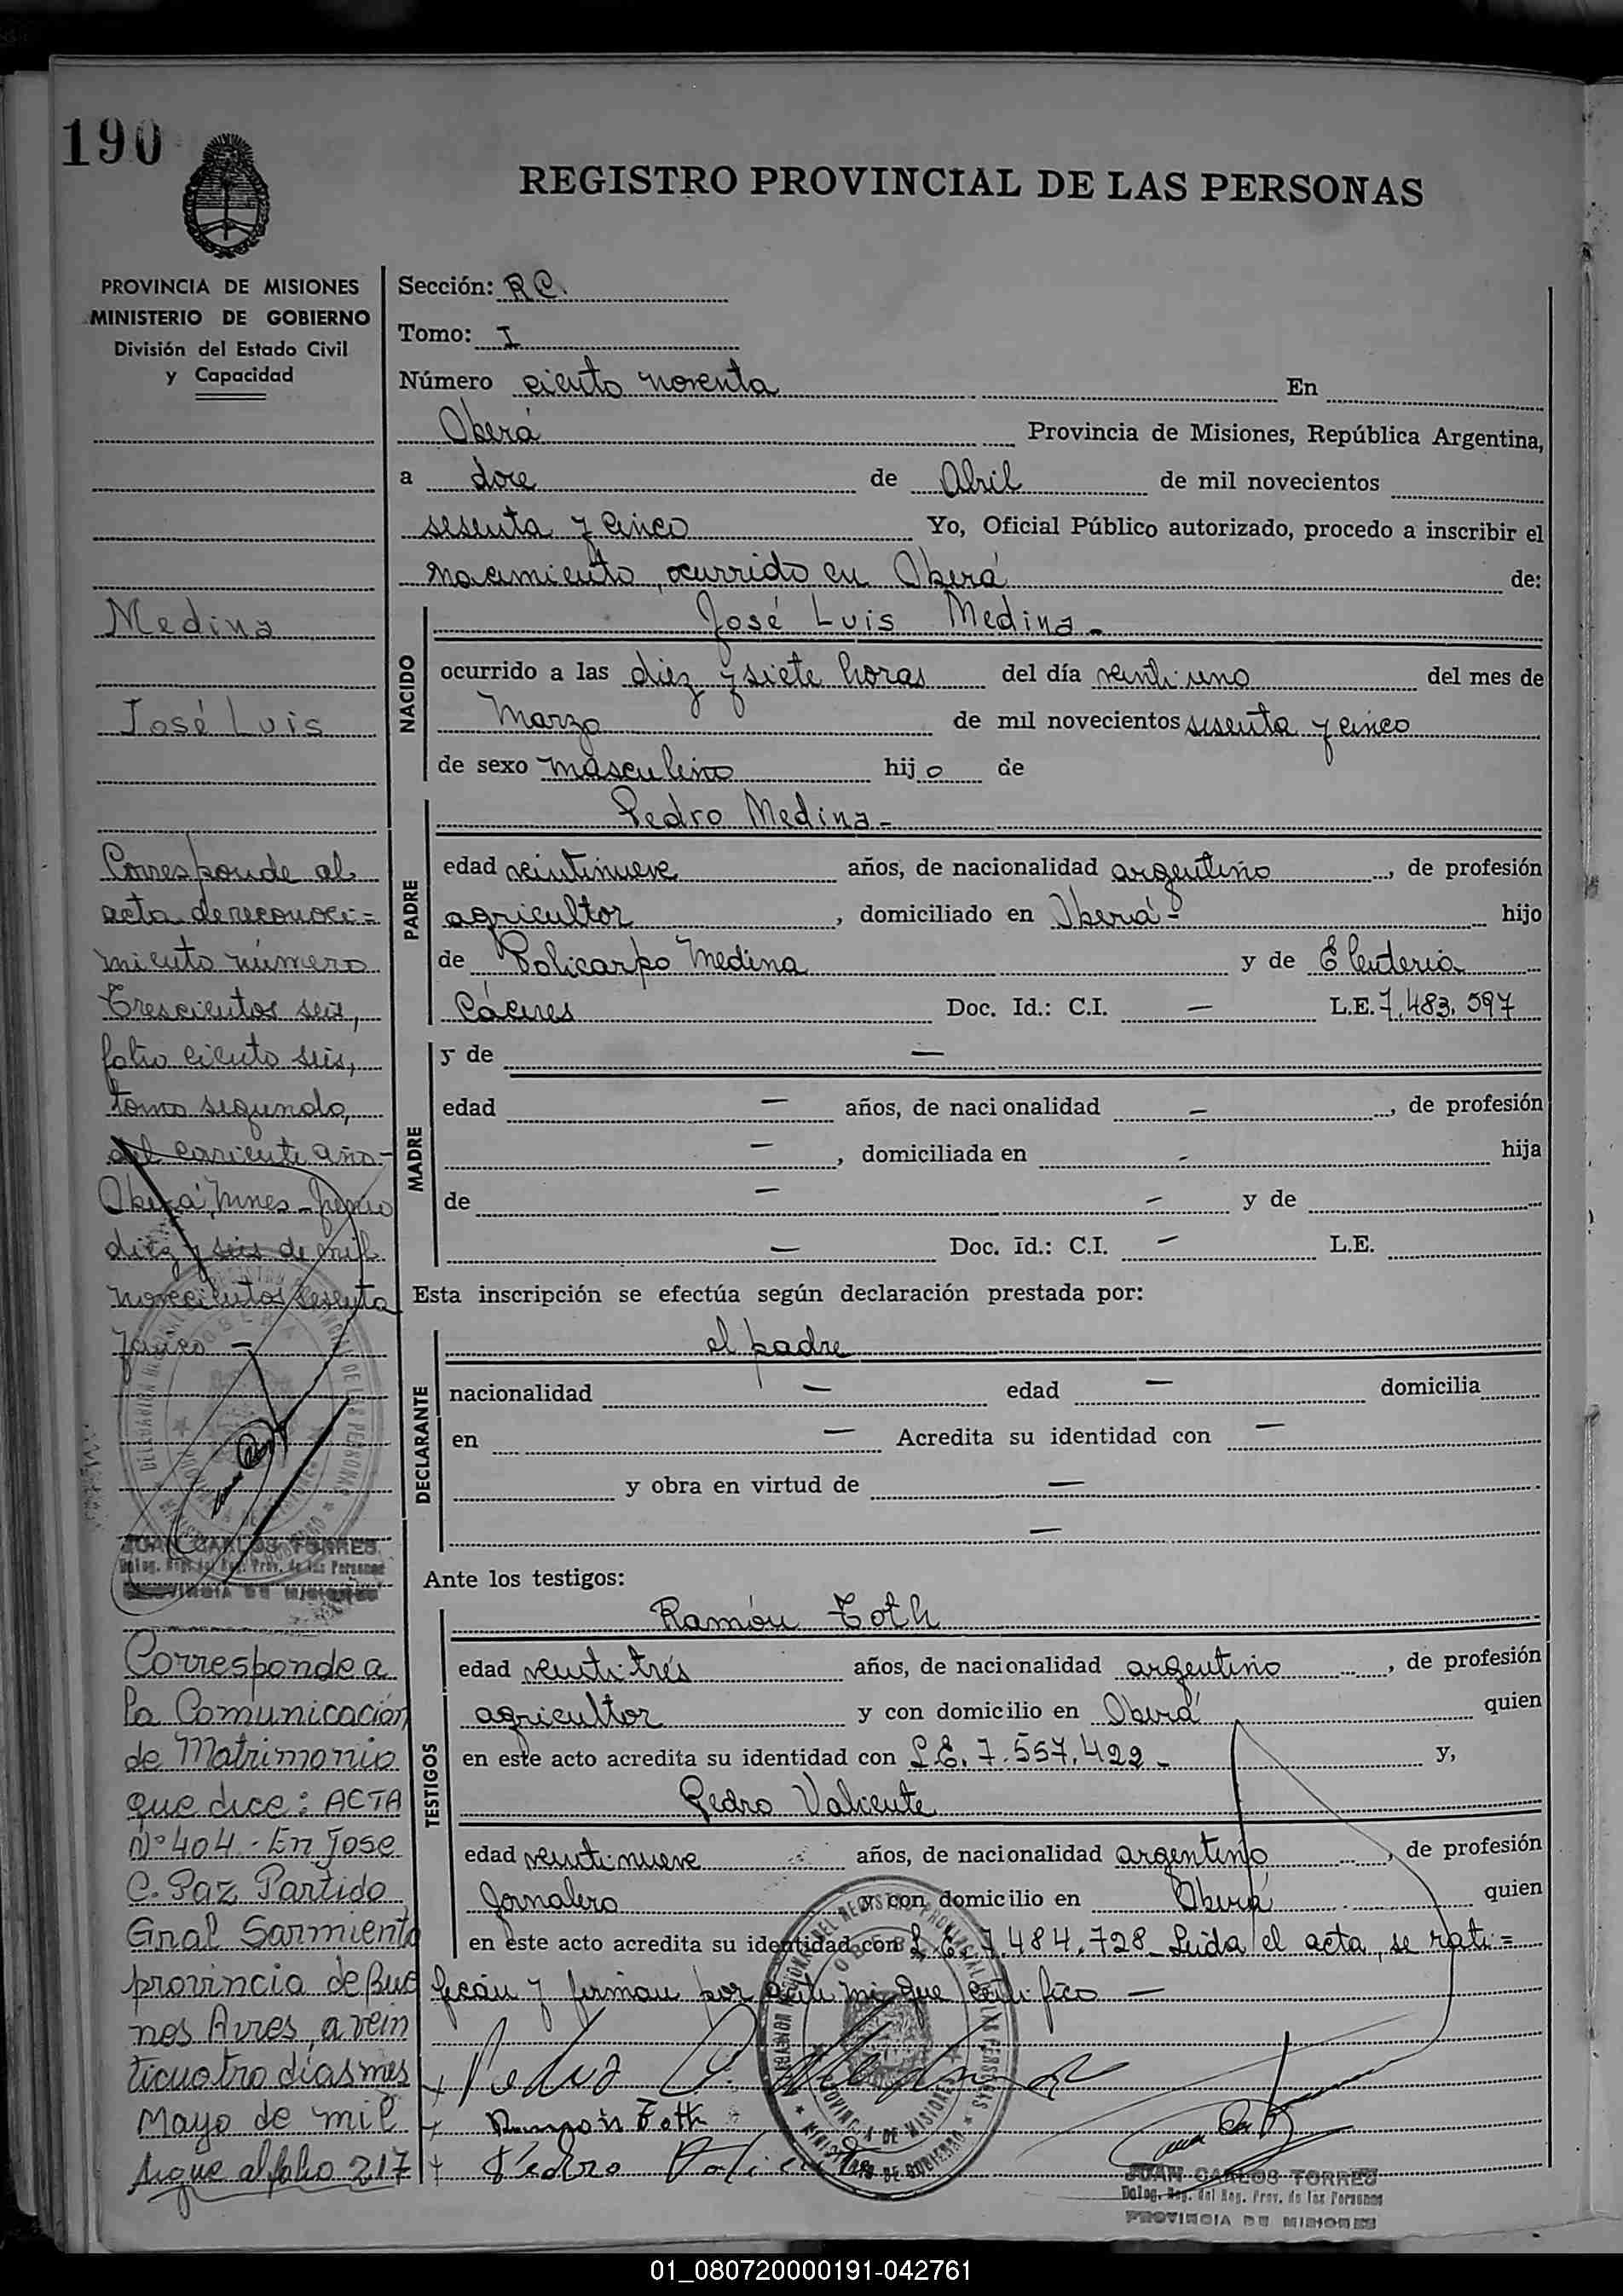 190
REGISTRO PROVINCIAL DE LAS PERSONAS
PROVINCIA DE MISIONES
MINISTERIO DE GOBIERNO
División del Estado Civil
y Capacidad
Medina
José Luis
Corresponde al
acta de reconoci=
miento número
Trescientos seis,
folio ciento seis,
tomo segundo,
del corriente año-
Oberá, Mnes-Junio
diez y seis de mil
novecientos sesenta
y cinco -
JUAN CARLOS TORRES
Deleg. Reg. del Reg. Prov. de las Personas
PROVINCIA DE MISIONES
Corresponde a
la Comunicación
de Matrimonio
que dice: ACTA
Nº 404.- En Jose
C. Paz Partido
Gral Sarmiento
provincia de Bue
nos Aires, a vein
ticuatro días mes
Mayo de mil
Sigue al folio 217
Sección: R C.
Tomo: I
Número ciento noventa En
Oberá Provincia de Misiones, República Argentina,
a doce de Abril de mil novecientos
sesenta y cinco Yo, Oficial Público autorizado, procedo a inscribir el
nacimiento, ocurrido en Oberá de:
NACIDO
José Luis Medina-
ocurrido a las diez y siete horas del día veintiuno del mes de
Marzo de mil novecientos sesenta y cinco
de sexo masculino hijo de
PADRE
Pedro Medina-
edad veintinueve años, de nacionalidad argentino, de profesión
agricultor, domiciliado en Oberá- hijo
de Policarpo Medina y de Eleuteria
Cáceres Doc. Id.: C.I. — L.E. 7.483.597
MADRE
y de —
edad — años, de nacionalidad —, de profesión
—, domiciliada en - hija
de — - y de
— Doc. Id.: C.I. — L.E.
Esta inscripción se efectúa según declaración prestada por:
DECLARANTE
el padre
nacionalidad — edad — domicilia
en — Acredita su identidad con —
y obra en virtud de —
—
Ante los testigos:
TESTIGOS
Ramón Toth
edad veintitrés años, de nacionalidad argentino, de profesión
agricultor y con domicilio en Oberá quien
en este acto acredita su identidad con L.E. 7.557.422- y,
Pedro Valiente
edad veintinueve años, de nacionalidad argentino, de profesión
Jornalero y con domicilio en Oberá quien
en este acto acredita su identidad con L.E. 7.484.728- Leída el acta, se rati=
fican y firman por ante mi que certifico —
Pedro Medina
Ramón Toth
Pedro Valiente
JUAN CARLOS TORRES
Deleg. Reg. del Reg. Prov. de las Personas
PROVINCIA DE MISIONES
01_080720000191-042761